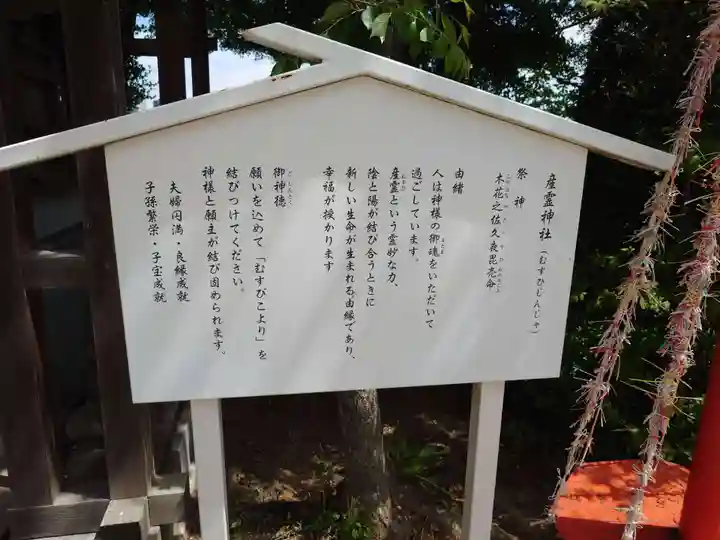 産霊神社(むすひじんじゃ)
祭神
木花之佐久夜毘売命
由緒
人は神様の御魂をいただいて
過ごしています。
産霊という霊妙な力、
陰と陽が結び合うときに
新しい生命が生まれる由縁であり、
幸福が授かります
御神徳
願いを込めて「むすびこより」を
結びつけてください。
神様と願主が結び固められます。
夫婦円満・良縁成就
子孫繁栄・子宝成就